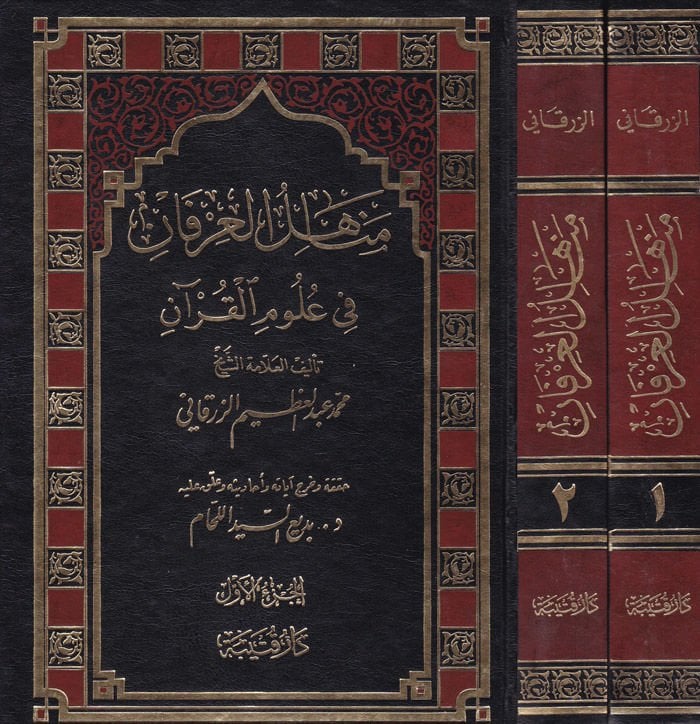 مَنَاهِلُ العِرْفَانِ
فِي عُلُومِ القُرْآنِ
تأليف العلامة الشيخ
محمد عبد العظيم الزرقاني
حققه وخرج آياته وأحاديثه وعلق عليه
د. بديع السيد اللحام
الجزء الأول
دار قتيبة
الزرقاني
مناهل العرفان
٢
دار قتيبة
الزرقاني
مناهل العرفان
١
دار قتيبة